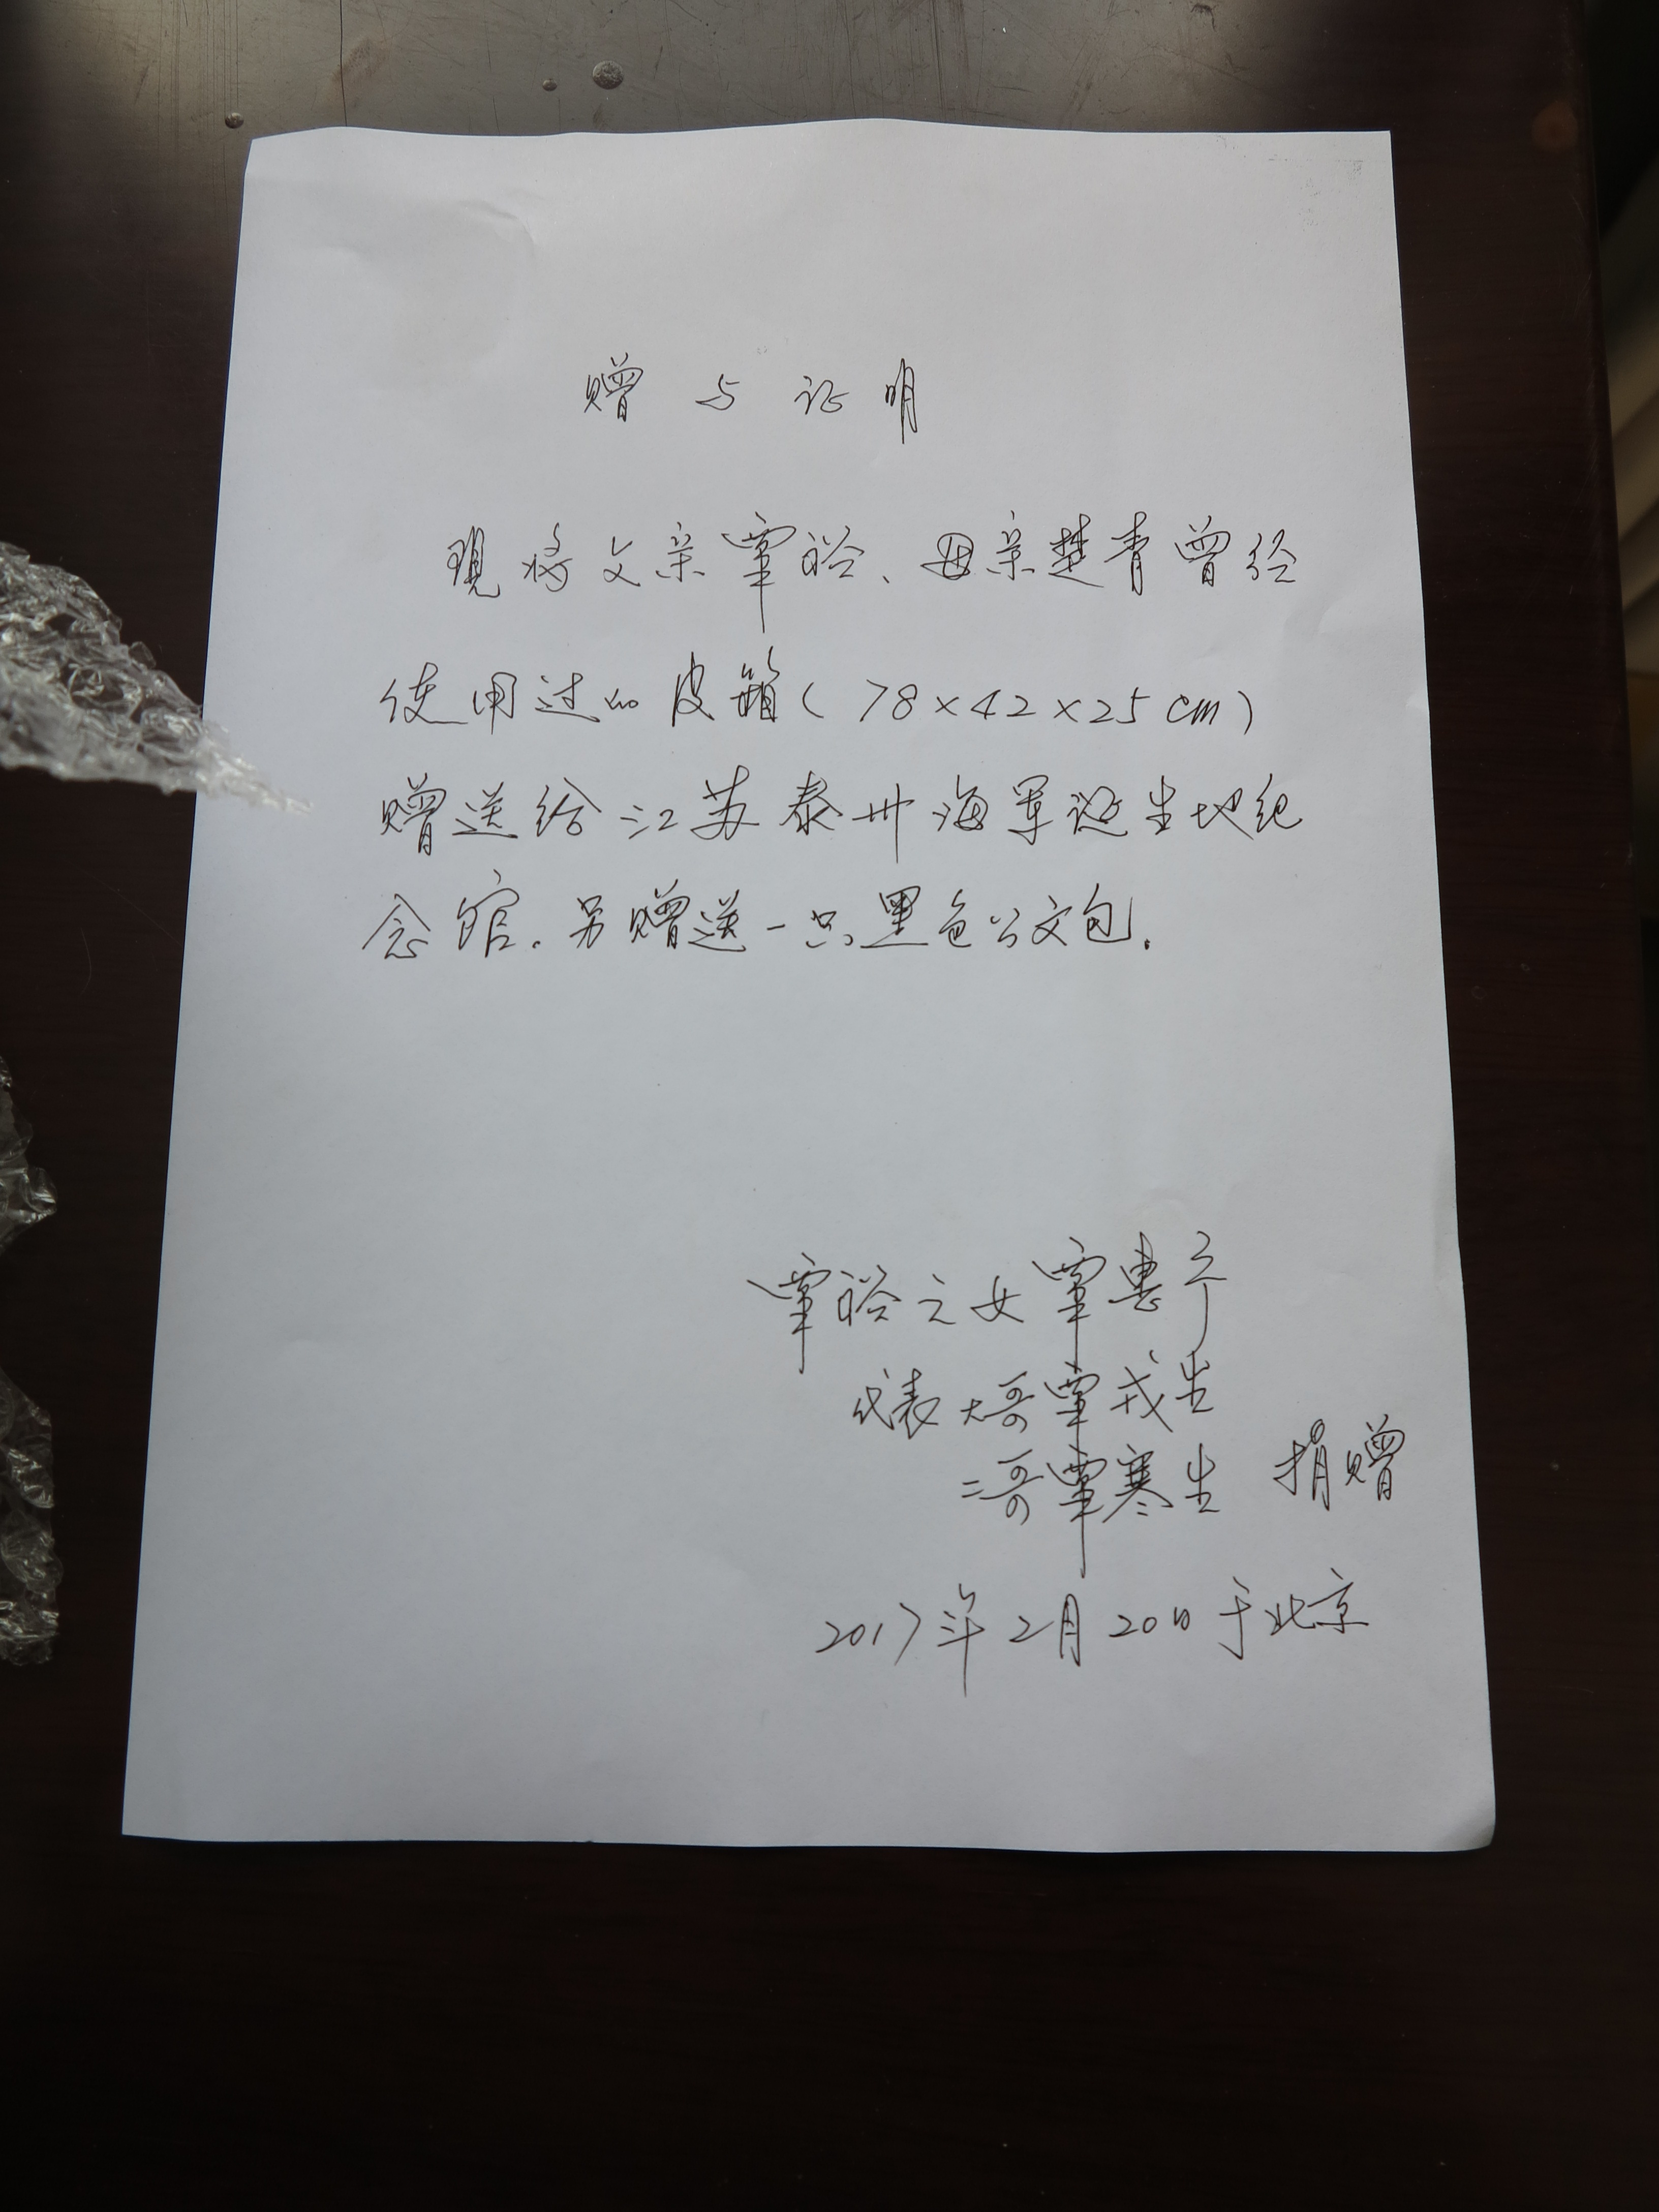 赠与证明
现将父亲粟裕、母亲楚青曾经
使用过的皮箱(78×42×25cm)
赠送给江苏泰州海军诞生地纪
念馆.另赠送一只黑色公文包.
粟裕之女粟惠宁
代表大哥粟戎生
二哥粟寒生 捐赠
2017年2月20日于北京